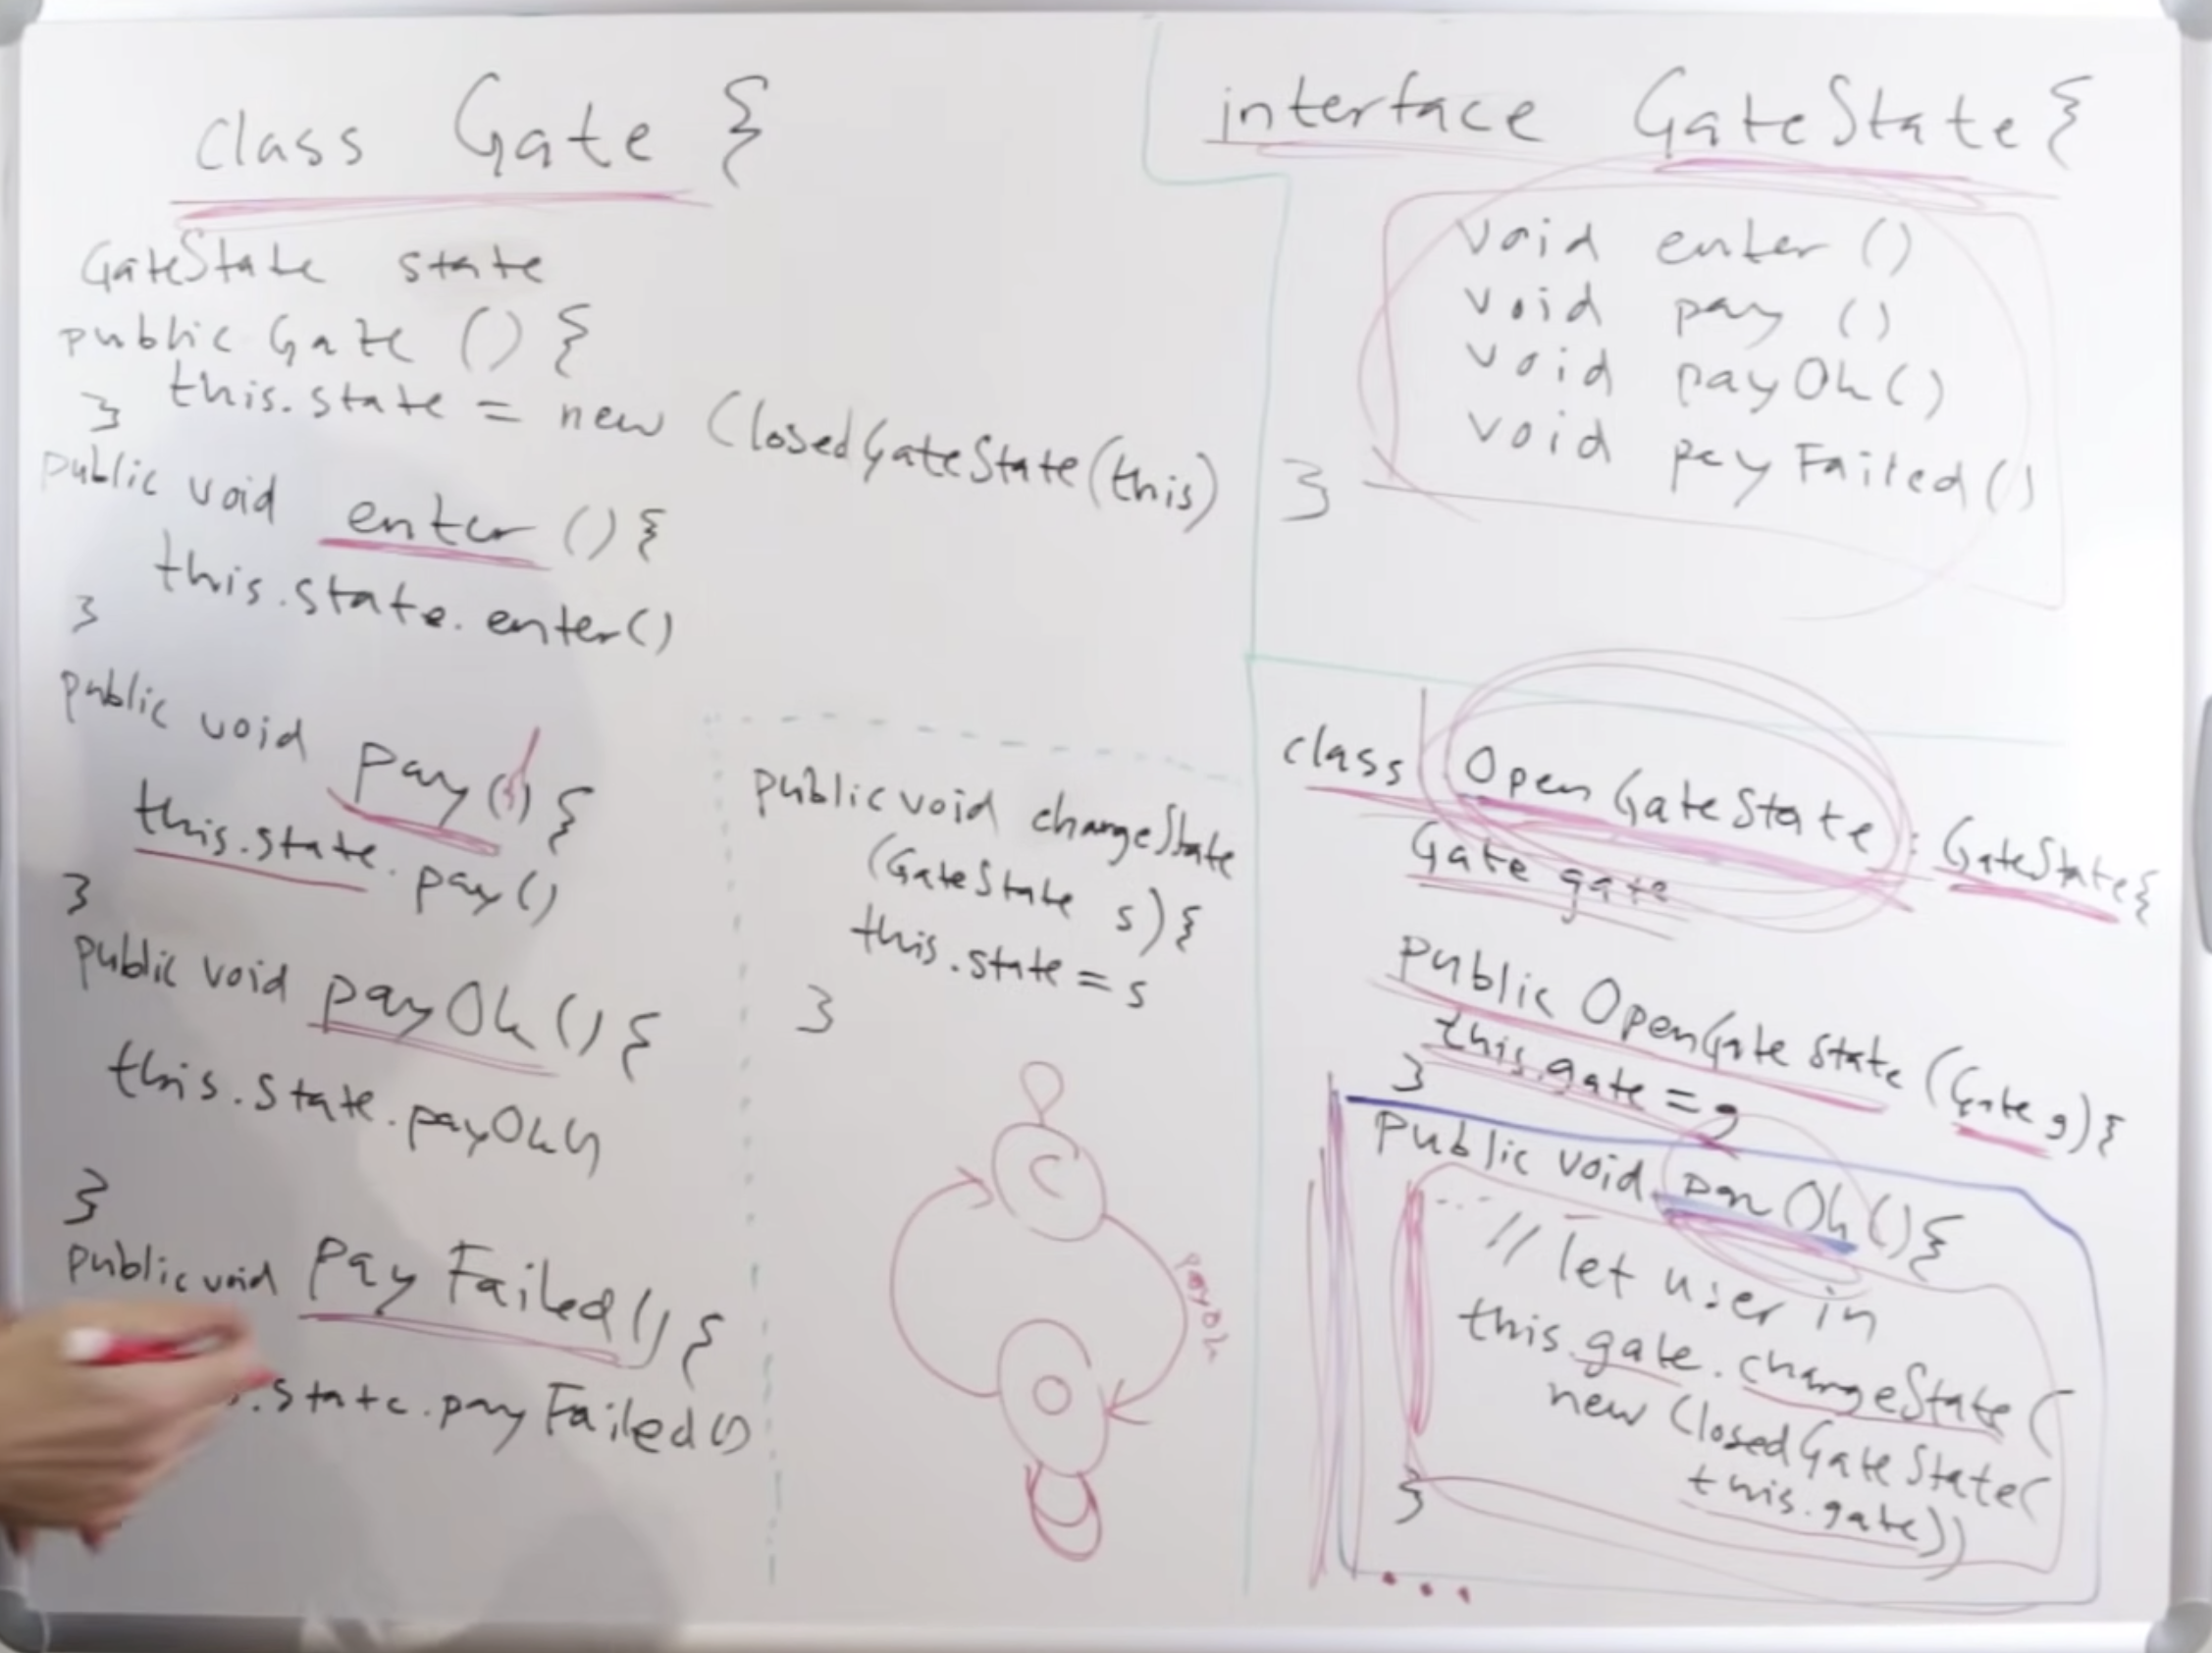 class Gate {
GateState state
public Gate () {
this.state = new ClosedGateState(this)
}
public void enter () {
this.state.enter()
}
public void pay () {
this.state.pay()
}
public void payOk () {
this.state.payOk()
}
public void payFailed () {
.state.payFailed()
public void changeState
(GateState s) {
this.state = s
}
C
payOk
O
interface GateState {
void enter ()
void pay ()
void payOk ()
void payFailed ()
}
class OpenGateState : GateState {
Gate gate
public OpenGateState (Gate g) {
this.gate = g
}
public void payOk () {
// let user in
this.gate.changeState(
new ClosedGateState(
this.gate))
}
...